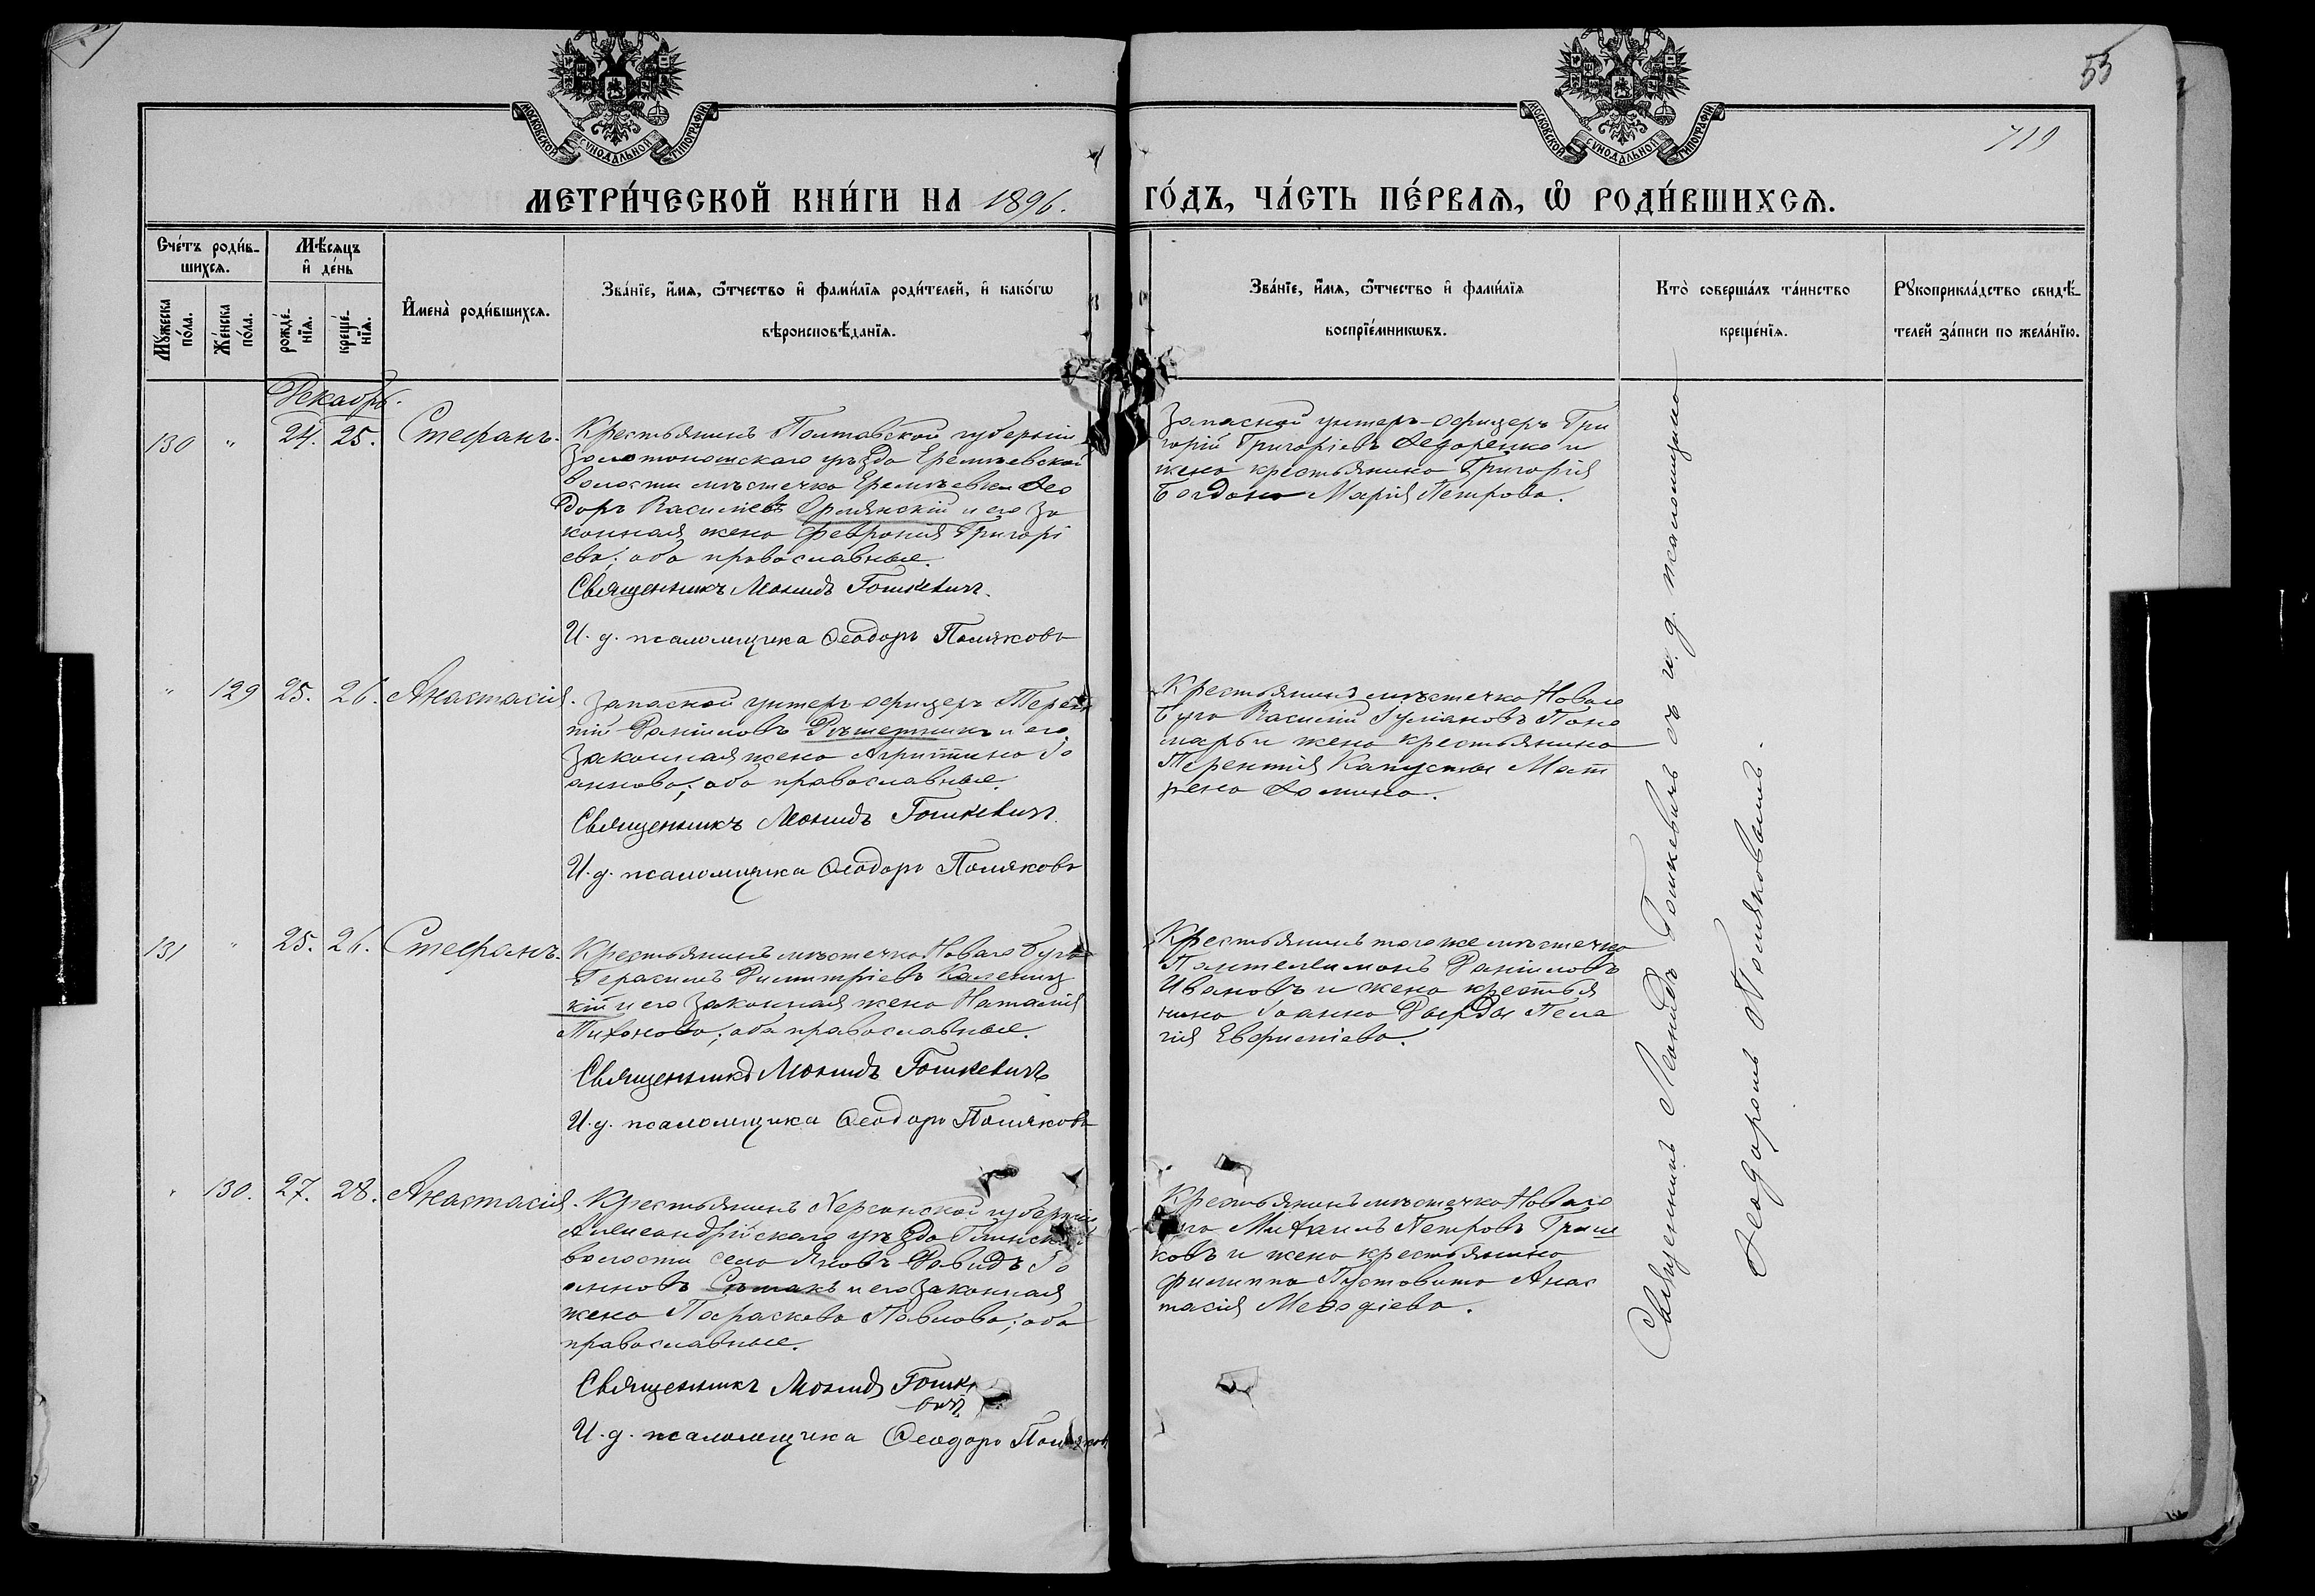 55
719
МОСКОВСКОЙ СѴНОДАЛЬНОЙ ТИПОГРАФІИ
МОСКОВСКОЙ СѴНОДАЛЬНОЙ ТИПОГРАФІИ
МЕТРИ́ЧЕСКОЙ КНИ́ГИ НА 1896. ГО́ДЪ, ЧА́СТЬ ПЕ́РВАѦ, Ѽ РОДИ́ВШИХСѦ.
Сче́тъ роди́в-
шихсѧ.
Мꙋ́жеска по́ла.
Же́нска по́ла.
Мѣ́сѧцъ и҆ де́нь
рожде́-нїѧ.
креще́-нїѧ.
И҆мена̀ роди́вшихсѧ.
Зва́нїе, и҆́мѧ, ѻ҆́тчество и҆ фами́лїѧ роди́телей, и҆ како́гѡ
вѣроисповѣ́данїѧ.
Зва́нїе, и҆́мѧ, ѻ҆́тчество и҆ фами́лїѧ
воспрїе́мникѡвъ.
Кто̀ соверша́лъ та́инство
креще́нїѧ.
Рꙋкоприкла́дство свидѣ́-
телей за́писи по жела́нїю.
Декабрь.
130 " 24. 25. Стефанъ.
Крестьянинъ Полтавской губерніи
Золотоношскаго уѣзда Еремѣевской
волости мѣстечка Еремѣевки Ѳео
доръ Василіевъ Ормянскій и его за
конная жена Февронія Григорі
ева; оба православные.
Священникъ Леонидъ Гошкевичъ.
И. д. псаломщика Ѳеодоръ Поляковъ
Запасной унтеръ-офицеръ Гри
горій Григоріевъ Ѳедоренко и
жена крестьянина Григорія
Богдана Марія Петрова.
" 129 25. 26. Анастасія.
Запасной унтеръ-офицеръ Терен
тій Даніиловъ Рѣшетникъ и его
законная жена Агриппина Іо
аннова; оба православные.
Священникъ Леонидъ Гошкевичъ.
И. д. псаломщика Ѳеодоръ Поляковъ
Крестьянинъ мѣстечка Новаго
Буга Василій Іуліановъ Поно
марь и жена крестьянина
Терентія Капусты Мат
рена Ѳомина.
131 " 25. 26. Стефанъ.
Крестьянинъ мѣстечка Новаго Буга
Герасимъ Димитріевъ Калениц
кій и его законная жена Наталія
Тихонова; оба православные.
Священникъ Леонидъ Гошкевичъ
И. д. псаломщика Ѳеодоръ Поляковъ
Крестьянинъ того же мѣстечка
Пантелеимонъ Даніиловъ
Ивановъ и жена крестья
нина Іоанна Дырды Пела
гія Евфиміева.
" 130. 27. 28. Анастасія.
Крестьянинъ Херсонской губерніи
Александрійскаго уѣзда Глинской
волости села Яновъ Давидъ Іо
анновъ и его законная
жена Параскева Павлова; оба
православные.
Священникъ Леонидъ Гошке
вичъ
И. д. псаломщика Ѳеодоръ Поляковъ
Крестьянинъ мѣстечка Новаго
Буга Михаилъ Петровъ Гриш
ковъ и жена крестьянина
Филиппа Пустовита Анас
тасія Меѳодіева.
Священникъ Леонидъ Гошкевичъ съ и. д. псаломщика
Ѳеодоромъ Поляковымъ.